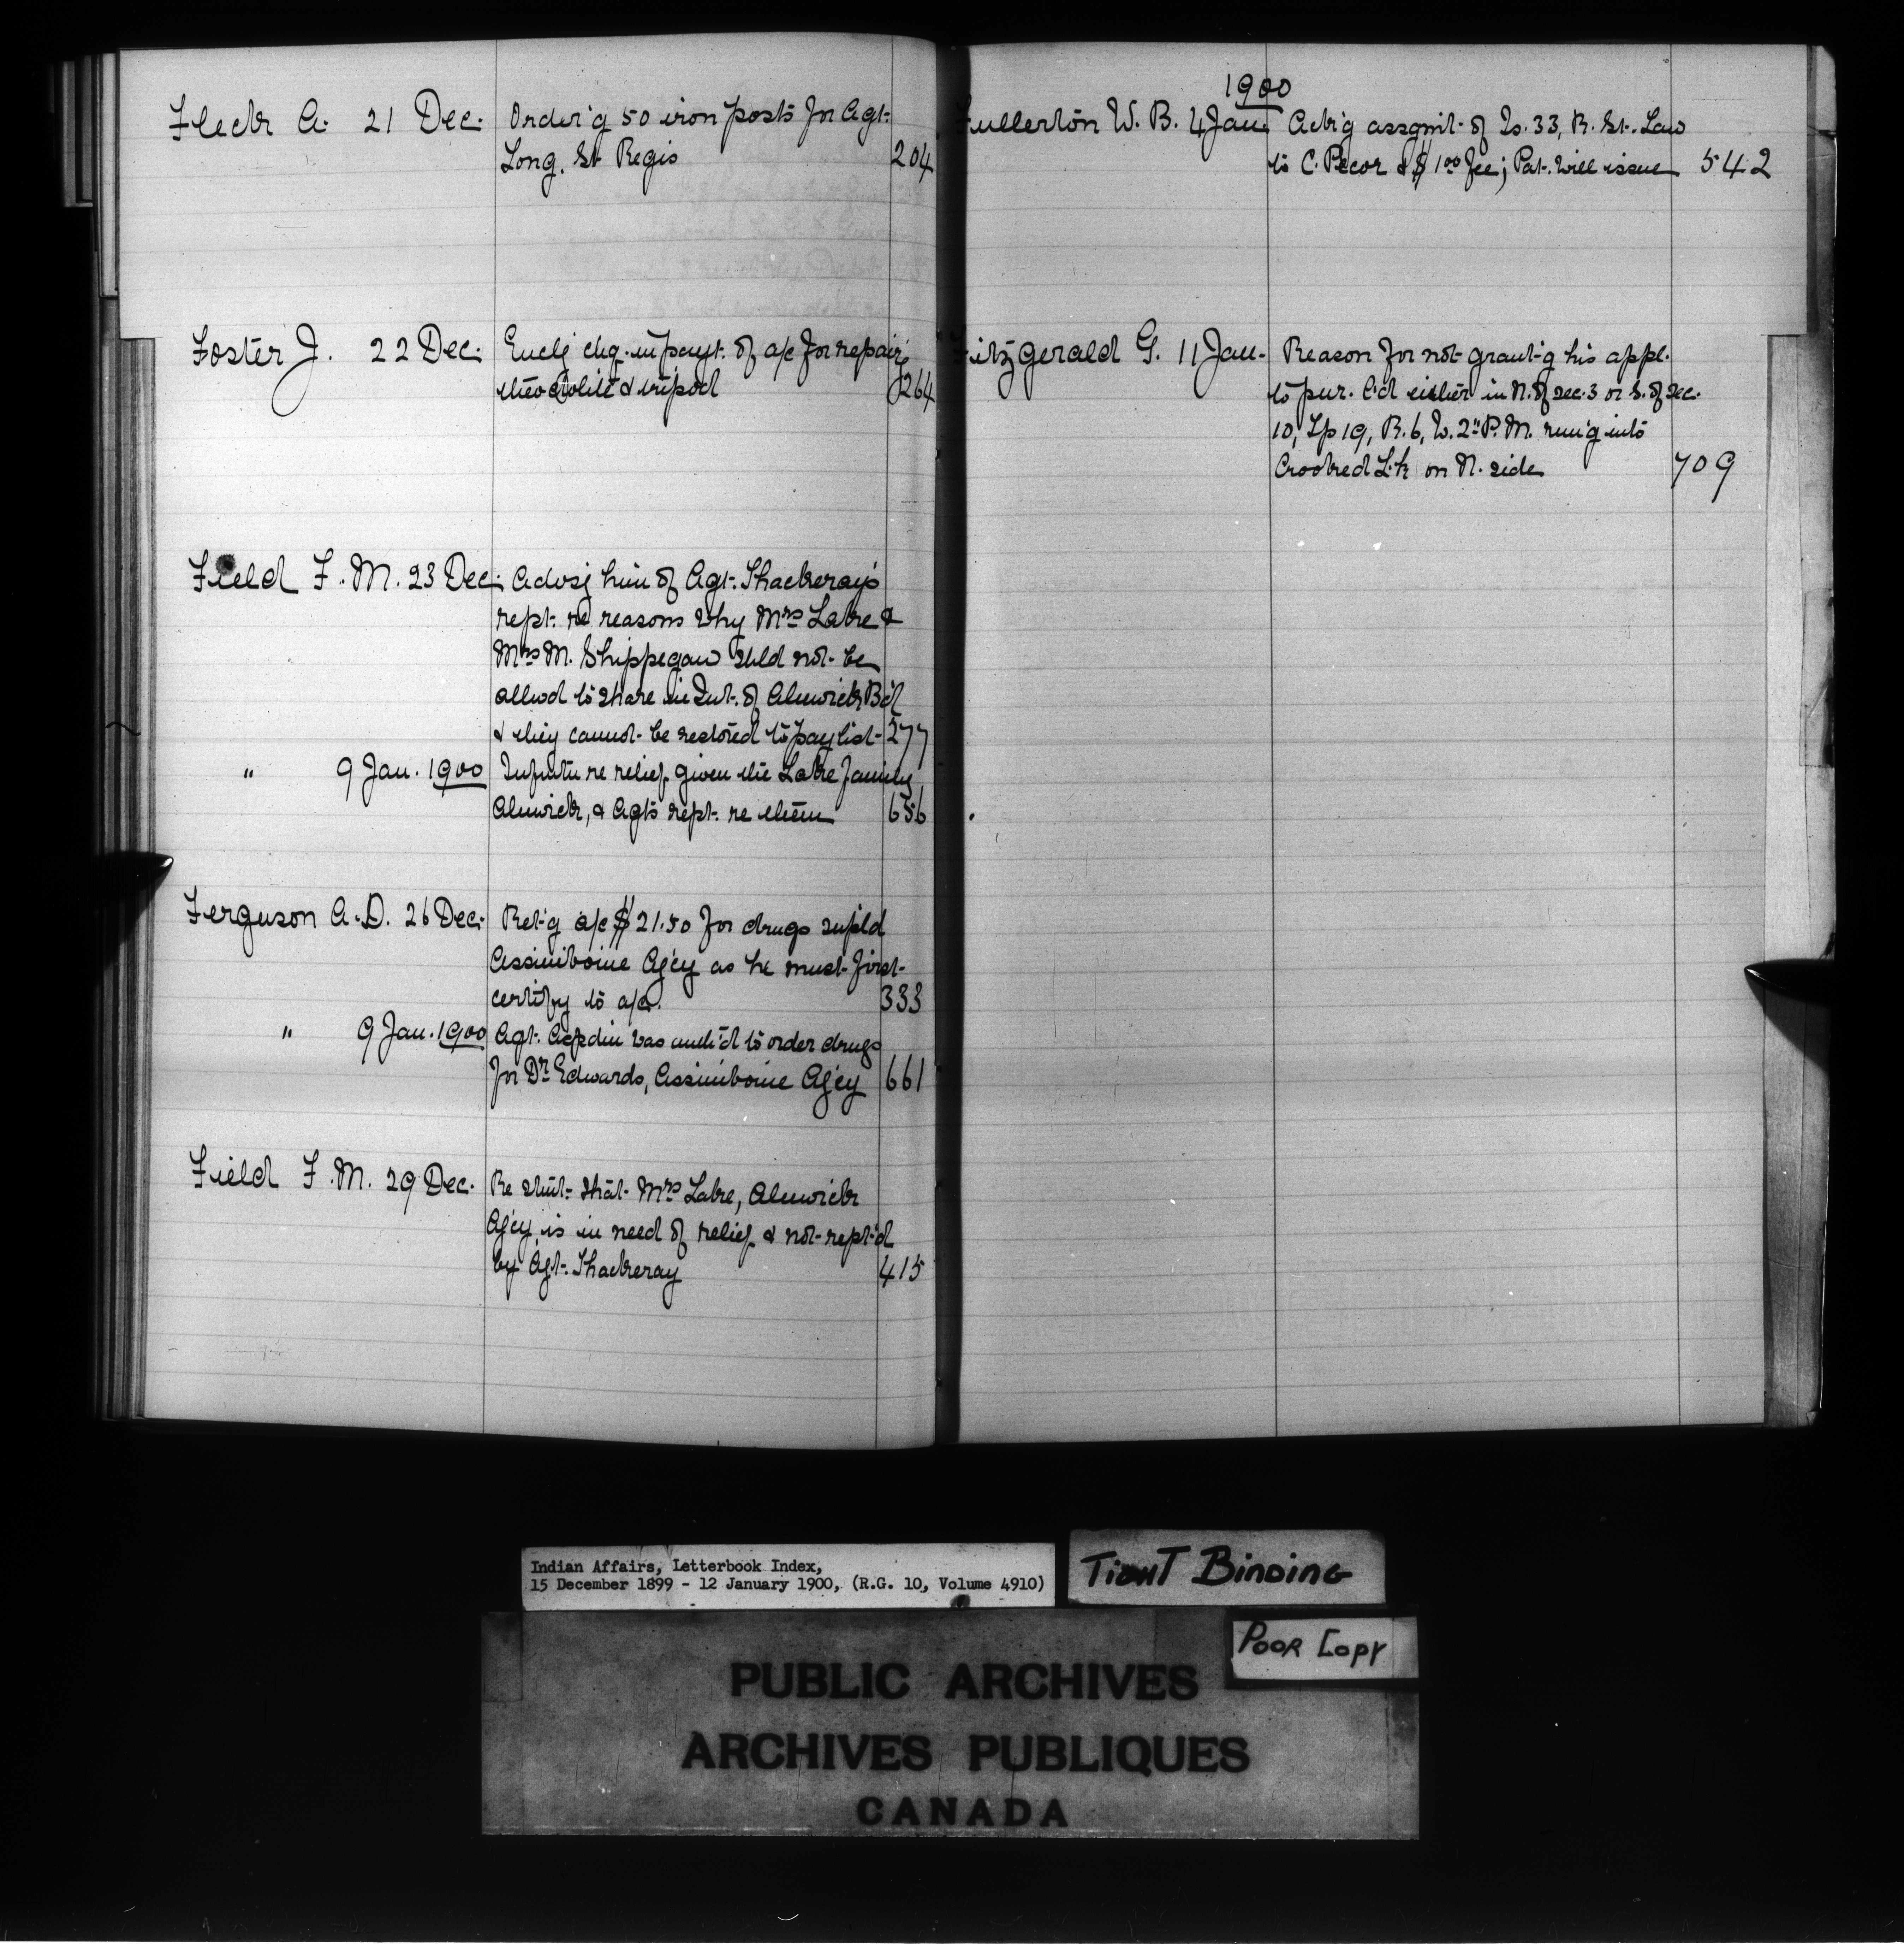 Fleck A. 21 Dec. Order'g 50 iron posts for Agt.
Long, St Regis 204
Foster J. 22 Dec. Enclg chq. in payt. of a/c for repairg
theodolite & tripod 264
Field F. M. 23 Dec. Advsg him of Agt. Thackeray's
rept. re reasons why Mrs Lake &
Mrs M. Shippegaw shld not be
allwd to share in Int. of Alnwick B'd
& they cannot be restored to paylist 277
" 9 Jan. 1900 Infmtn re relief given the Lake family
Alnwick, & Agts rept. re them 656
Ferguson A. D. 26 Dec. Ret'g a/c $21.50 for drugs supld
Assiniboine Ag'cy as he must first
certify to a/c. 333
" 9 Jan. 1900 Agt. Aspdin was auth'd to order drugs
for Dr. Edwards, Assiniboine Ag'cy 661
Field F. M. 29 Dec. Re stmt. that Mrs Lake, Alnwick
Ag'cy is in need of relief & not rept'd
by Agt. Thackeray 415
1900
Fullerton W. B. 4 Jan. Ack'g assgmt. of 33, R. St. Law
to C. Pecor & $1.00 fee; Pat. will issue 542
Fitzgerald G. 11 Jan. Reason for not grant'g his appl.
to pur. l'd either in N. of sec. 3 or S. of sec.
10, Tp 19, R. 6, W. 2" P. M. run'g into
Crooked L'k on N. side 709
Indian Affairs, Letterbook Index,
15 December 1899 - 12 January 1900, (R.G. 10, Volume 4910)
TIGHT BINDING
POOR COPY
PUBLIC ARCHIVES
ARCHIVES PUBLIQUES
CANADA